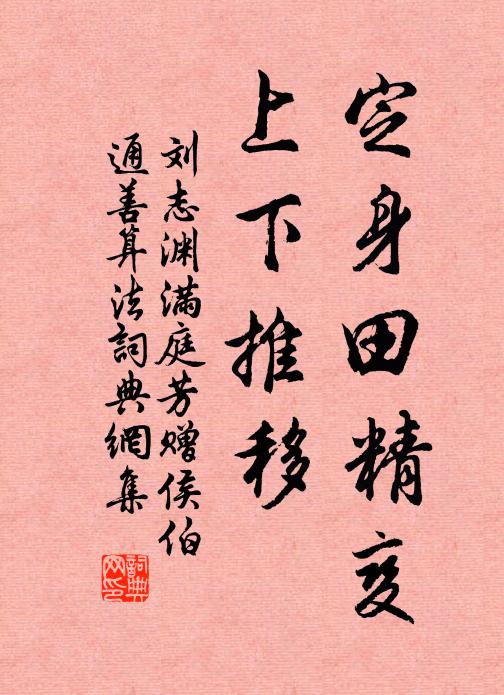 定身田精变
上下推移
刘志渊满庭芳赠侯伯
通善算法詞典網集
詞典
网印